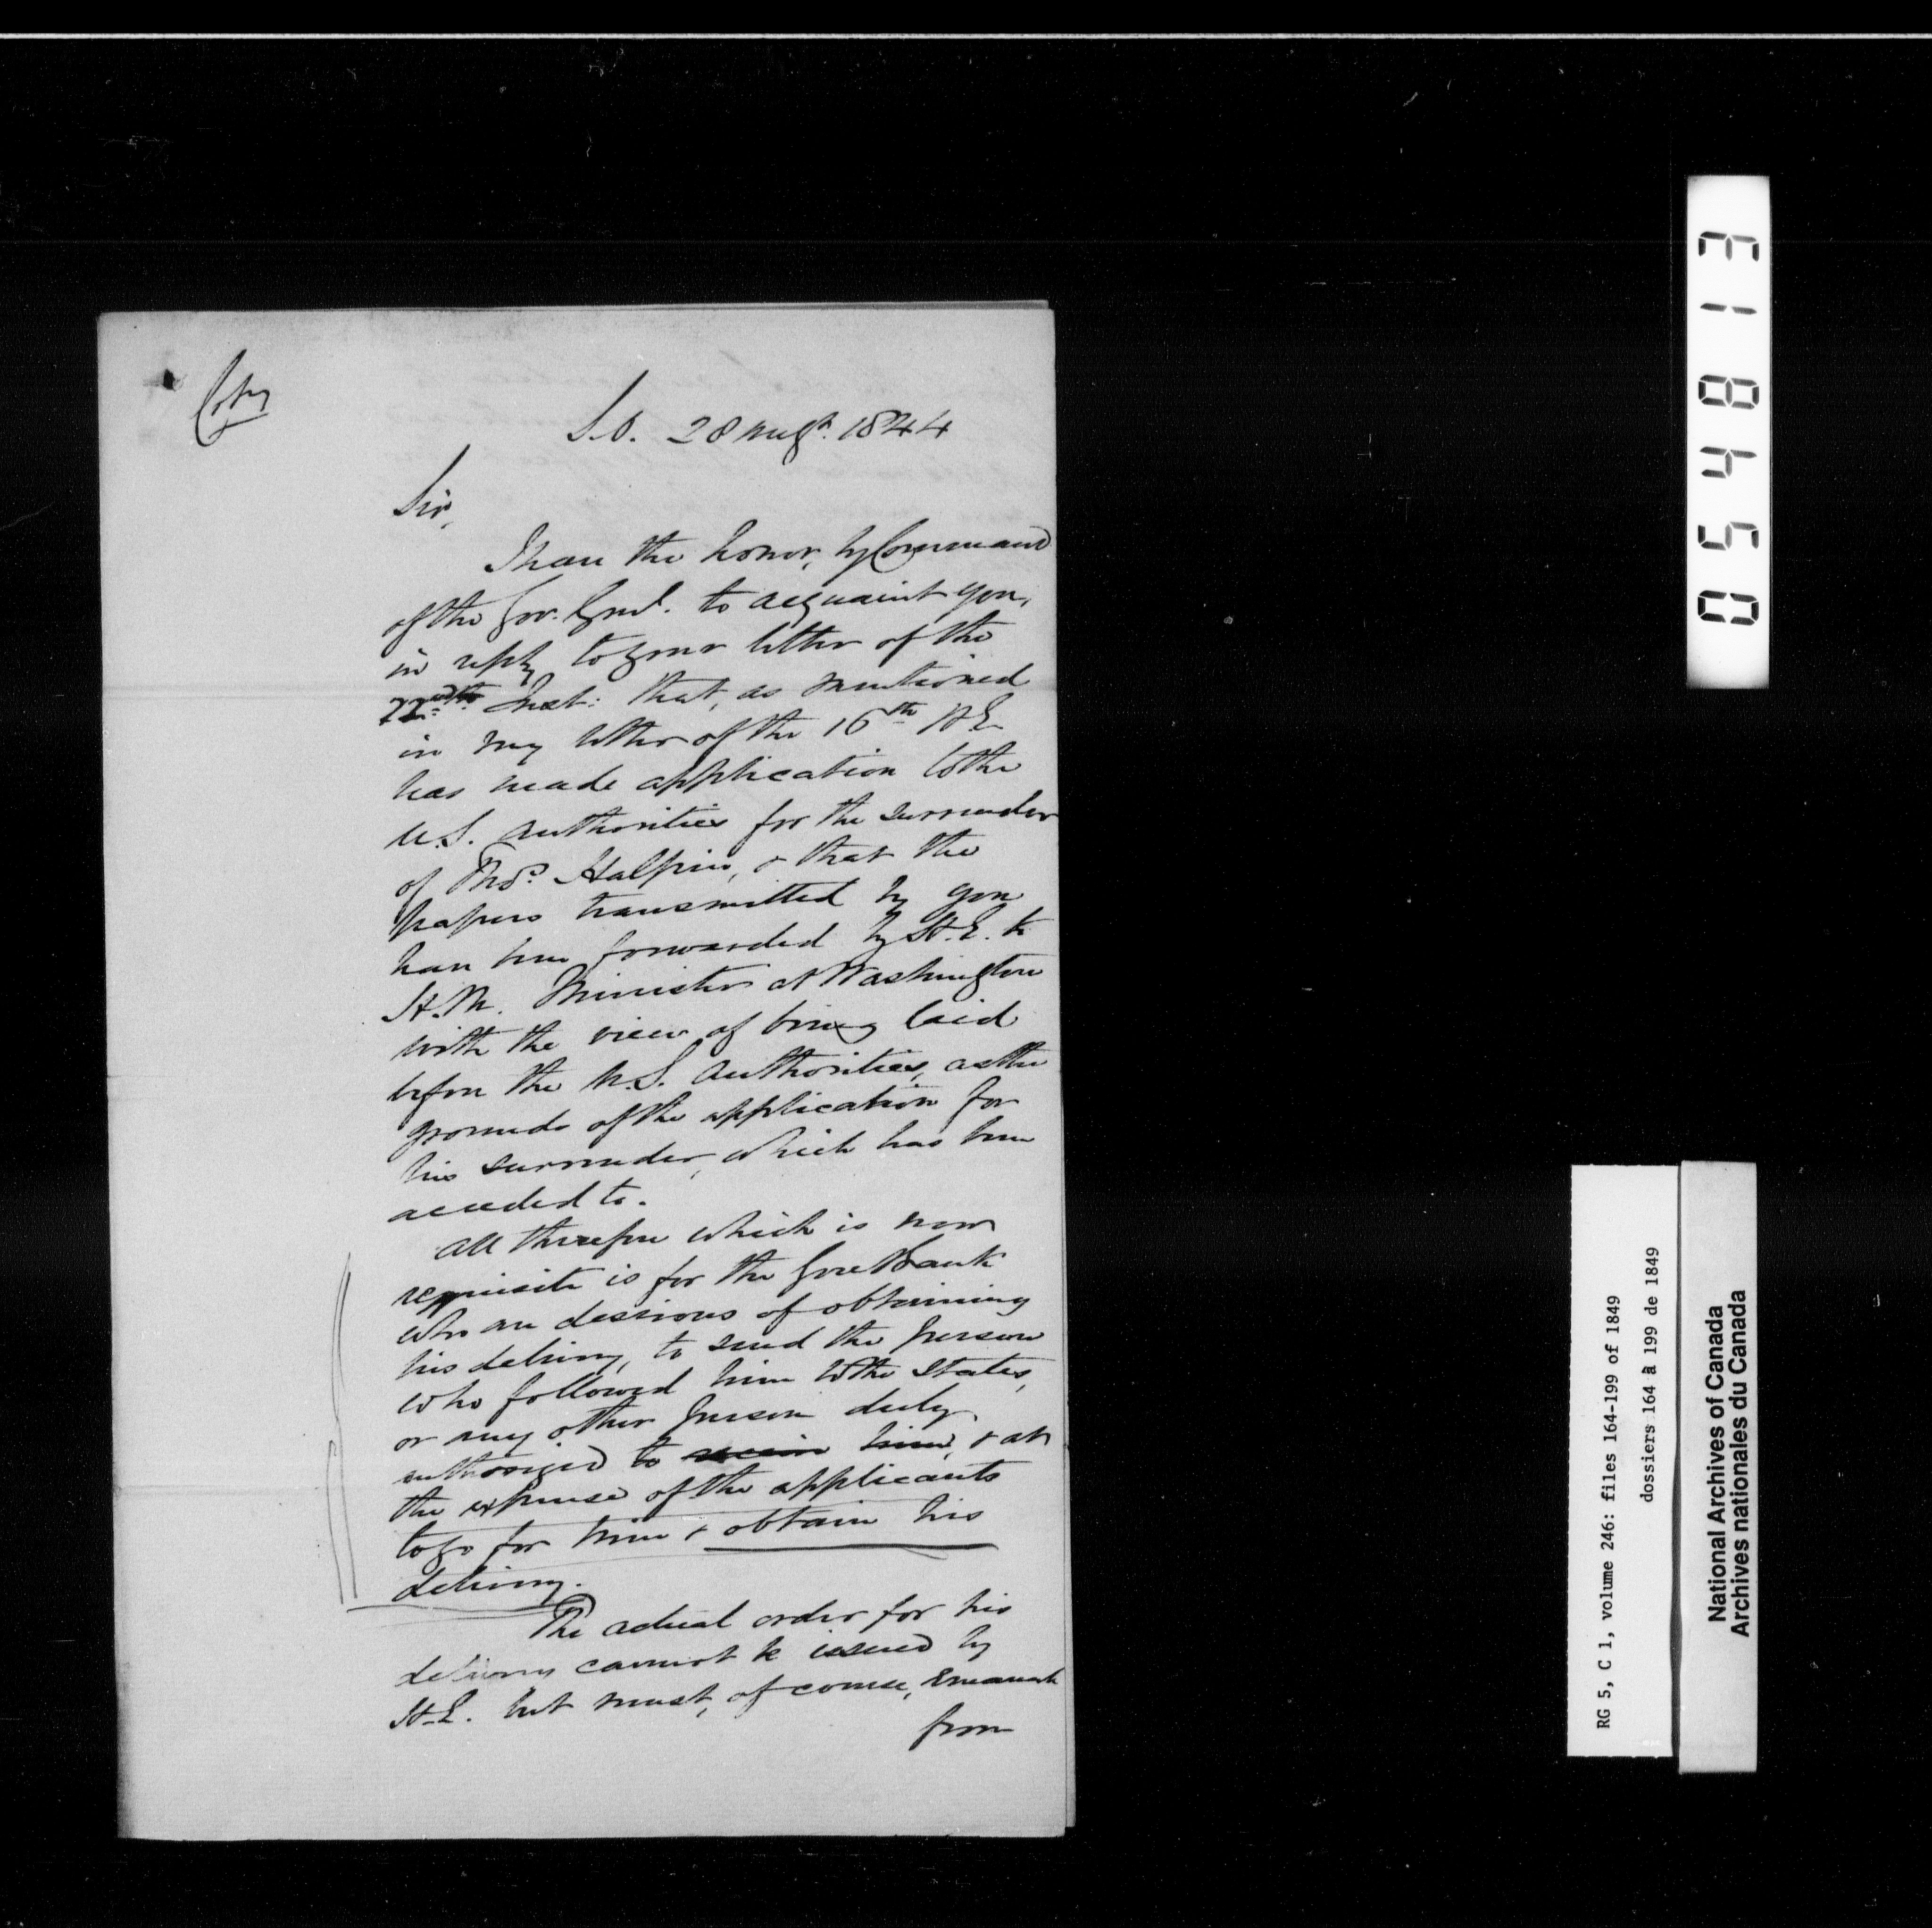 Copy
S.O. 28 Augt. 1844
Sir,
I have the honor, by Command
of the Gov. Genl. to acquaint you,
in reply to your letter of the
22nd Inst: that, as mentioned
in my letter of the 16th H.E.
has made application to the
U.S. authorities for the surrender
of Thos. Halpin, & that the
papers transmitted by you
have been forwarded by H.E. to
H.M. Minister at Washington
with the view of being laid
before the U.S. Authorities, as the
grounds of the application for
his surrender, which has been
acceded to.
All therefore which is now
requisite is for the Gore Bank
who are desirous of obtaining
his delivery, to send the person
who followed him to the States,
or any other person duly
authorized to receive him, & at
the expense of the applicants
to go for him & obtain his
delivery.
The actual order for his
delivery cannot be issued by
H.E. but must, of course, emanate
from
054813
RG 5, C 1, volume 246: files 164-199 of 1849
dossiers 164 à 199 de 1849
National Archives of Canada
Archives nationales du Canada